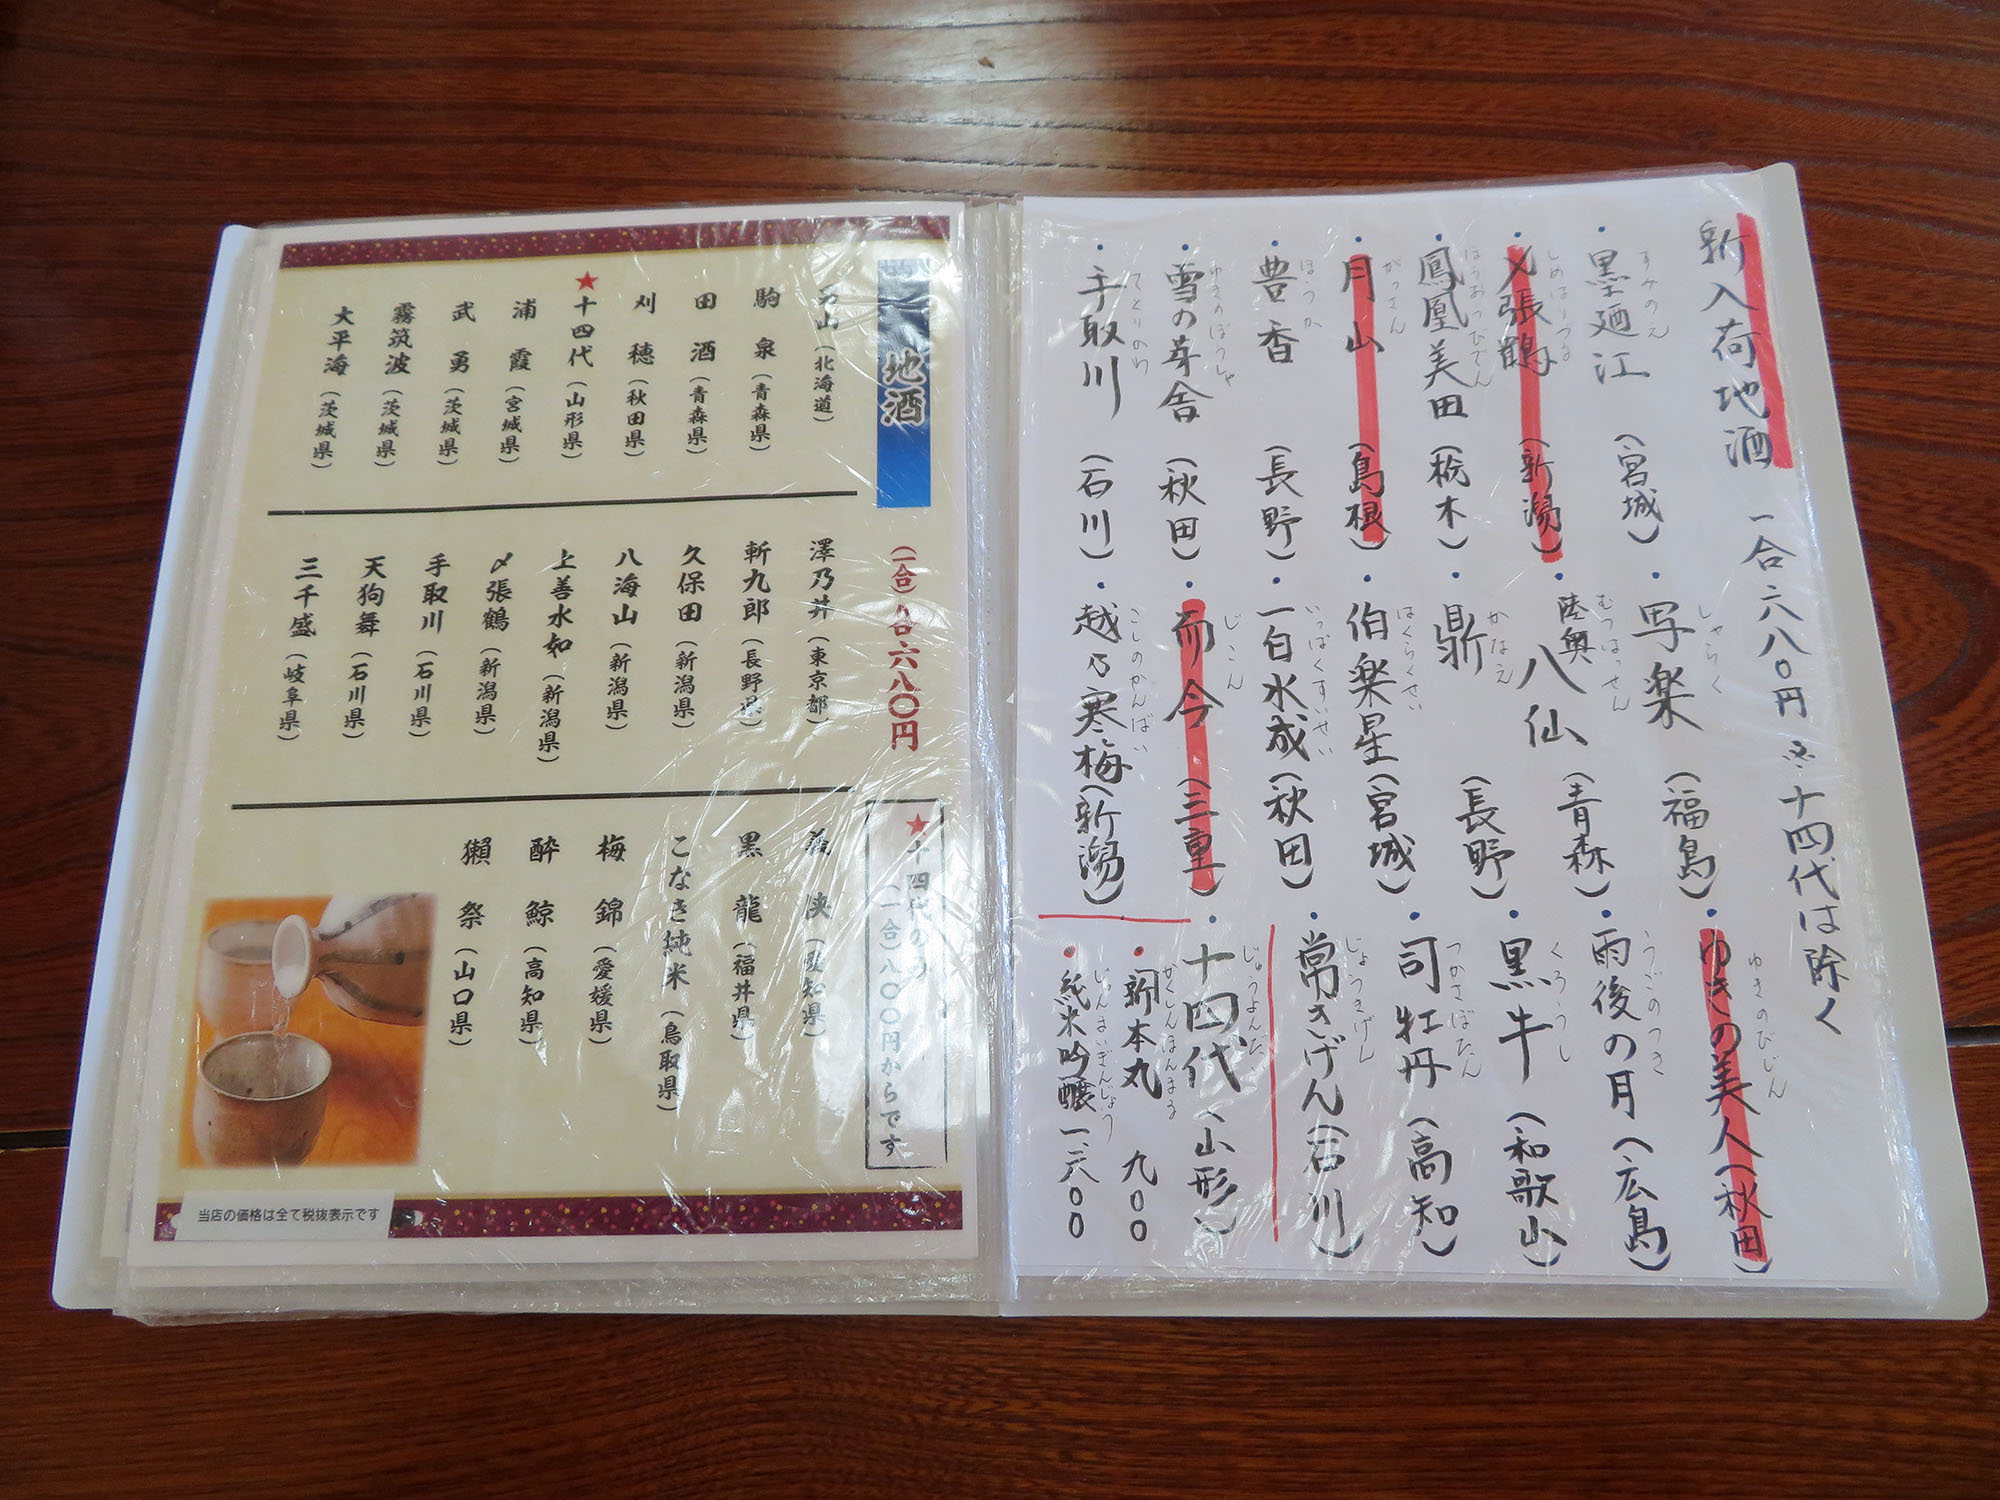 新入荷地酒 一合六八〇円 ※十四代は除く
・墨廼江 (宮城)
すみのえ
・〆張鶴 (新潟)
しめはりづる
・鳳凰美田 (栃木)
ほうおうびでん
・月山 (島根)
がっさん
・豊香 (長野)
ほうか
・雪の茅舎 (秋田)
ゆきのぼうしゃ
・手取川 (石川)
てとりがわ
・写楽 (福島)
しゃらく
・陸奥八仙 (青森)
むつはっせん
・鼎 (長野)
かなえ
・伯楽星 (宮城)
はくらくせい
・一白水成 (秋田)
いっぱくすいせい
・而今 (三重)
じこん
・越乃寒梅 (新潟)
こしのかんばい
・ゆきの美人 (秋田)
ゆきのびじん
・雨後の月 (広島)
うごのつき
・黒牛 (和歌山)
くろうし
・司牡丹 (高知)
つかさぼたん
・常きげん (石川)
じょうきげん
・十四代 (山形)
じゅうよんだい
・本丸 九〇〇
・純米吟醸 一二六〇〇
じゅんまいぎんじょう
地酒 (一合) 六八〇円
男山 (北海道)
駒泉 (青森県)
田酒 (青森県)
刈穂 (秋田県)
★十四代 (山形県)
浦霞 (宮城県)
武勇 (茨城県)
霧筑波 (茨城県)
大平海 (茨城県)
澤乃井 (東京都)
斬九郎 (長野県)
久保田 (新潟県)
八海山 (新潟県)
上善水如 (新潟県)
〆張鶴 (新潟県)
手取川 (石川県)
天狗舞 (石川県)
三千盛 (岐阜県)
★十四代のみ
(一合)八〇〇円からです
義侠 (愛知県)
黒龍 (福井県)
こなき純米 (鳥取県)
梅錦 (愛媛県)
酔鯨 (高知県)
獺祭 (山口県)
当店の価格は全て税抜表示です